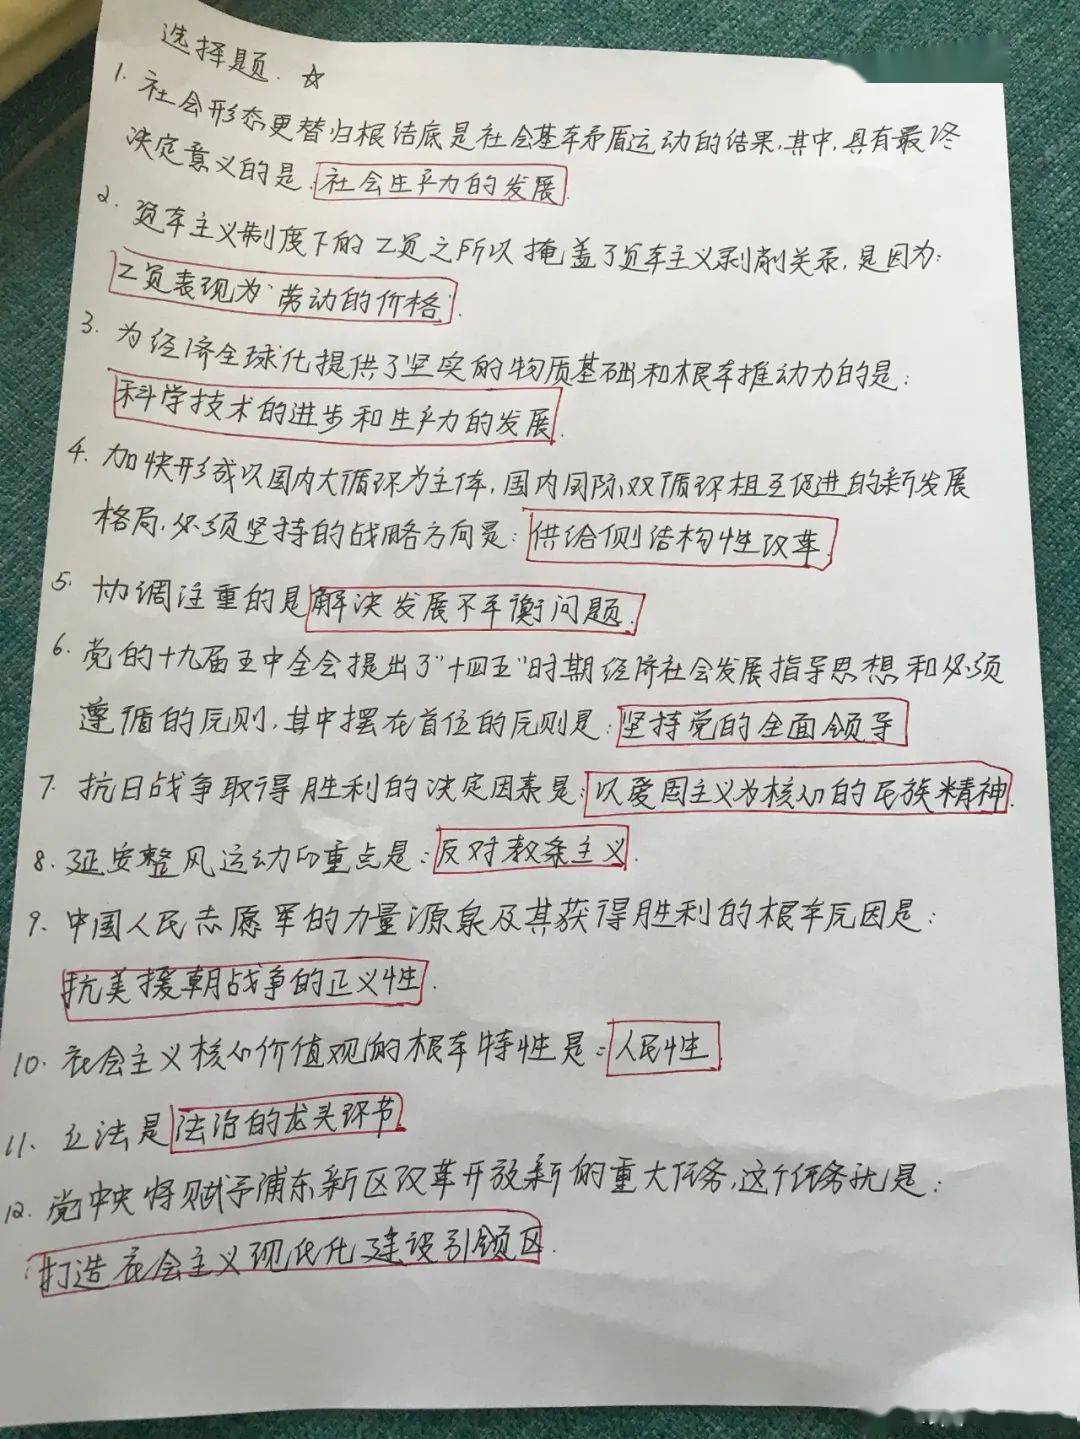 选择题. ☆
1. 社会形态更替归根结底是社会基本矛盾运动的结果,其中,具有最终
决定意义的是. 社会生产力的发展.
2. 资本主义制度下的工资之所以掩盖了资本主义剥削关系,是因为:
工资表现为"劳动的价格".
3. 为经济全球化提供了坚实的物质基础和根本推动力的是:
科学技术的进步和生产力的发展.
4. 加快形成以国内大循环为主体,国内国际双循环相互促进的新发展
格局,必须坚持的战略方向是: 供给侧结构性改革.
5. 协调注重的是解决发展不平衡问题.
6. 党的十九届五中全会提出了"十四五"时期经济社会发展指导思想和必须
遵循的原则,其中摆在首位的原则是: 坚持党的全面领导
7. 抗日战争取得胜利的决定因素是: 以爱国主义为核心的民族精神.
8. 延安整风运动的重点是: 反对教条主义.
9. 中国人民志愿军的力量源泉及其获得胜利的根本原因是:
抗美援朝战争的正义性.
10. 社会主义核心价值观的根本特性是: 人民性.
11. 立法是法治的龙头环节.
12. 党中央将赋予浦东新区改革开放新的重大任务,这个任务就是:
打造社会主义现代化建设引领区.